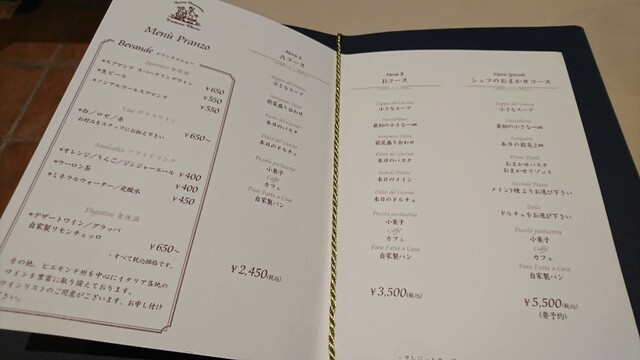 Menù Pranzo
Bevande ドリンクメニュー
Aperitivo 食前酒
*スプマンテ スパークリングワイン ¥650
*生ビール ¥550
*ノンアルコールスプマンテ ¥550
Vini グラスワイン
*白／ロゼ／赤 ¥650~
お好みをスタッフにお伝え下さい
Analcolico ソフトドリンク
*オレンジ／りんご／ジンジャーエール ¥400
*ウーロン茶 ¥400
*ミネラルウォーター／炭酸水 ¥450
Digestivo 食後酒
*デザートワイン／グラッパ
自家製リモンチェッロ ¥650~
・すべて税込価格です。
その他、ピエモンテ州を中心にイタリア各地の
ワインを豊富に取り揃えております。
ワインリストのご用意がございます、お申し付け
下さい。
Menù A
Aコース
Zuppa del Giorno
小さなスープ
Antipasto Misto
前菜盛り合わせ
Pasta del Giorno
本日のパスタ
Dolce del Giorno
本日のドルチェ
Piccola pasticceria
小菓子
Caffè
カフェ
Pane Fatto a Casa
自家製パン
¥2,450(税込)
Menù B
Bコース
Zuppa del Giorno
小さなスープ
Stuzzichino
最初の小さな一皿
Antipasto Misto
前菜盛り合わせ
Pasta del Giorno
本日のパスタ
Secondo Piatto
本日のメイン
Dolce del Giorno
本日のドルチェ
Piccola pasticceria
小菓子
Caffè
カフェ
Pane Fatto a Casa
自家製パン
¥3,500(税込)
Menù Speciale
シェフのおまかせコース
Zuppa del Giorno
小さなスープ
Stuzzichino
最初の小さな一皿
Antipasto
本日の前菜二皿
Primo Piatto
おまかせパスタ
おまかせリゾット
Secondo Piatto
メイン1種よりお選び下さい
Dolce
ドルチェをお選び下さい
Piccola pasticceria
小菓子
Caffè
カフェ
Pane Fatto a Casa
自家製パン
¥5,500(税込)
(要予約)